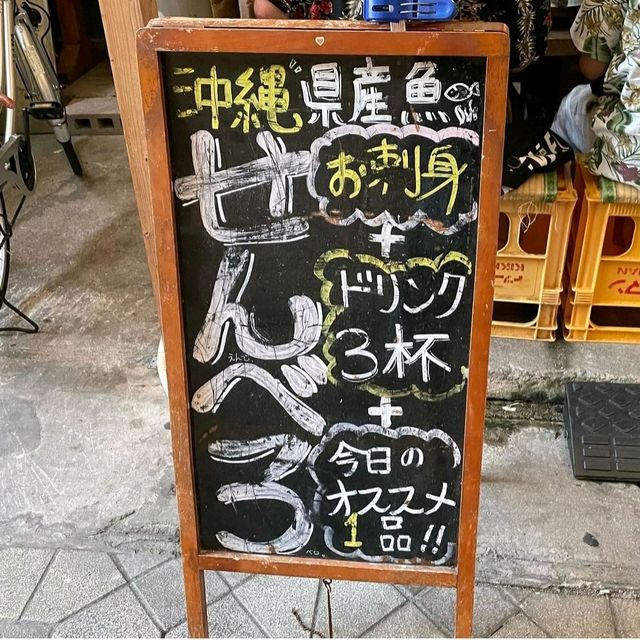 沖縄県産魚
せんべろ
お刺身
+
ドリンク
3杯
+
今日の
オススメ
1品!!
KIRIN